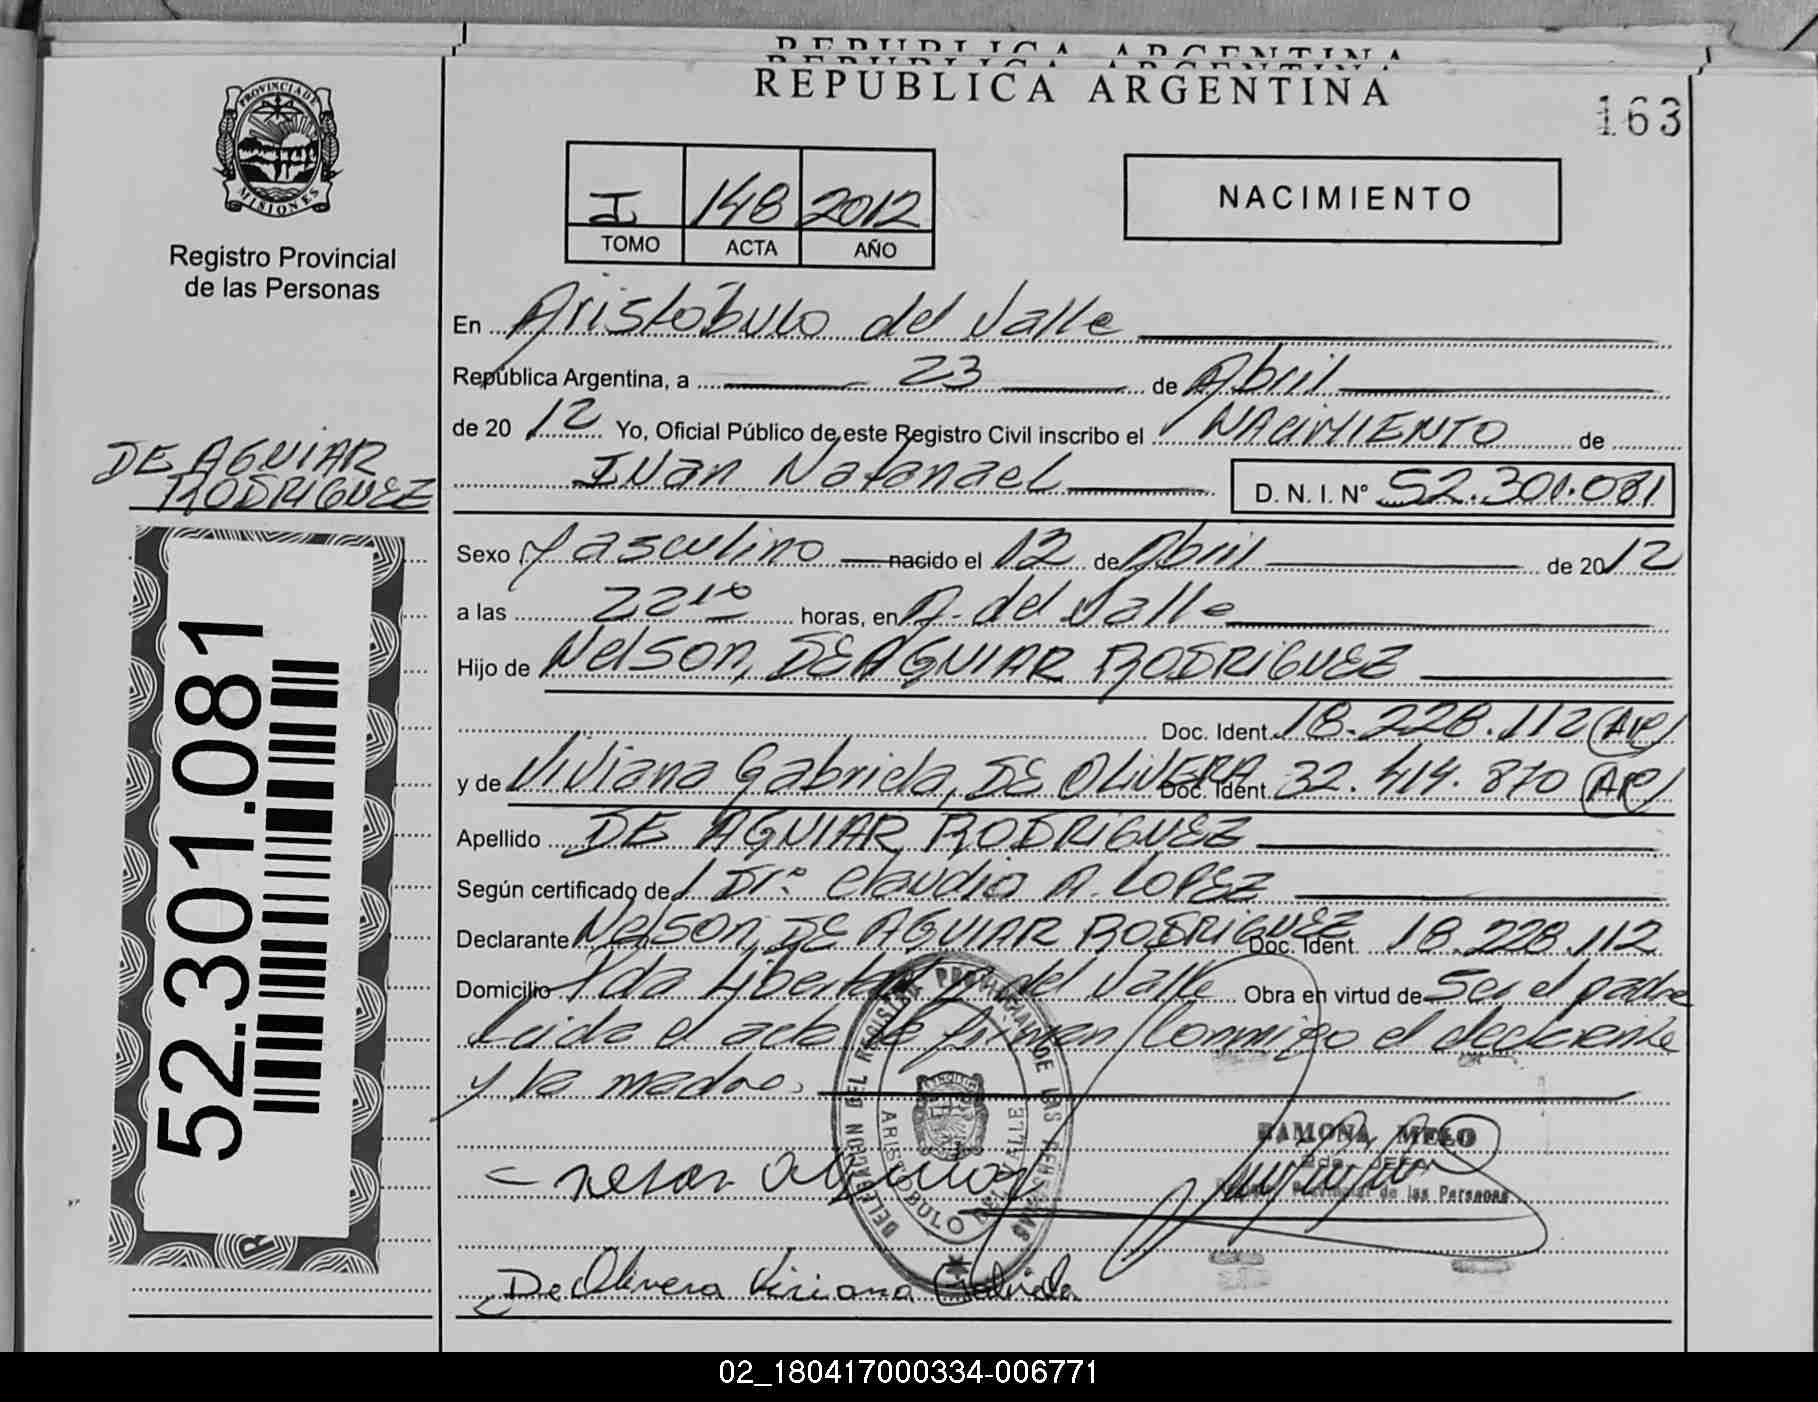 REPUBLICA ARGENTINA
163
PROVINCIA DE
MISIONES
Registro Provincial
de las Personas
I 148 2012
TOMO ACTA AÑO
NACIMIENTO
En Aristóbulo del Valle
República Argentina, a 23 de Abril
de 2012 Yo, Oficial Público de este Registro Civil inscribo el NACIMIENTO de
Ivan Natanael D.N.I. Nº 52.301.081
DE AGUIAR
RODRIGUEZ
52.301.081
Sexo Masculino nacido el 12 de Abril de 2012
a las 22 10 horas, en A. del Valle
Hijo de Nelson, DE AGUIAR RODRIGUEZ
Doc. Ident. 18.228.112 (AR)
y de Viviana Gabriela, DE OLIVERA Doc. Ident. 32.414.870 (AR)
Apellido DE AGUIAR RODRIGUEZ
Según certificado de Dr. Claudio A. LOPEZ
Declarante Nelson, DE AGUIAR RODRIGUEZ Doc. Ident. 18.228.112
Domicilio Pda Libertad A. del Valle Obra en virtud de Ser el padre
Leida el acta la firman conmigo el declarante
y la madre.
DELEGACION DEL REGISTRO PROVINCIAL DE LAS PERSONAS
ARISTOBULO DEL VALLE
RAMONA MELO
2da JEFA
Provincial de las Personas
De Olivera Viviana Gabriela
02_180417000334-006771